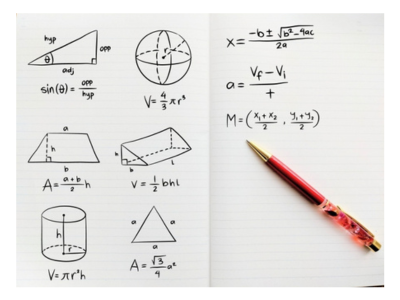 hyp
opp
θ
adj
sin(θ) = opp/hyp
r
V = 4/3 πr³
a
h
b
A = a+b/2 h
h
b
l
V = 1/2 bhl
h
r
V = πr²h
a
a
a
A = √3/4 a²
x = -b ± √b² - 4ac/2a
a = Vf - Vi/t
M = (x₁ + x₂/2 , y₁ + y₂/2)